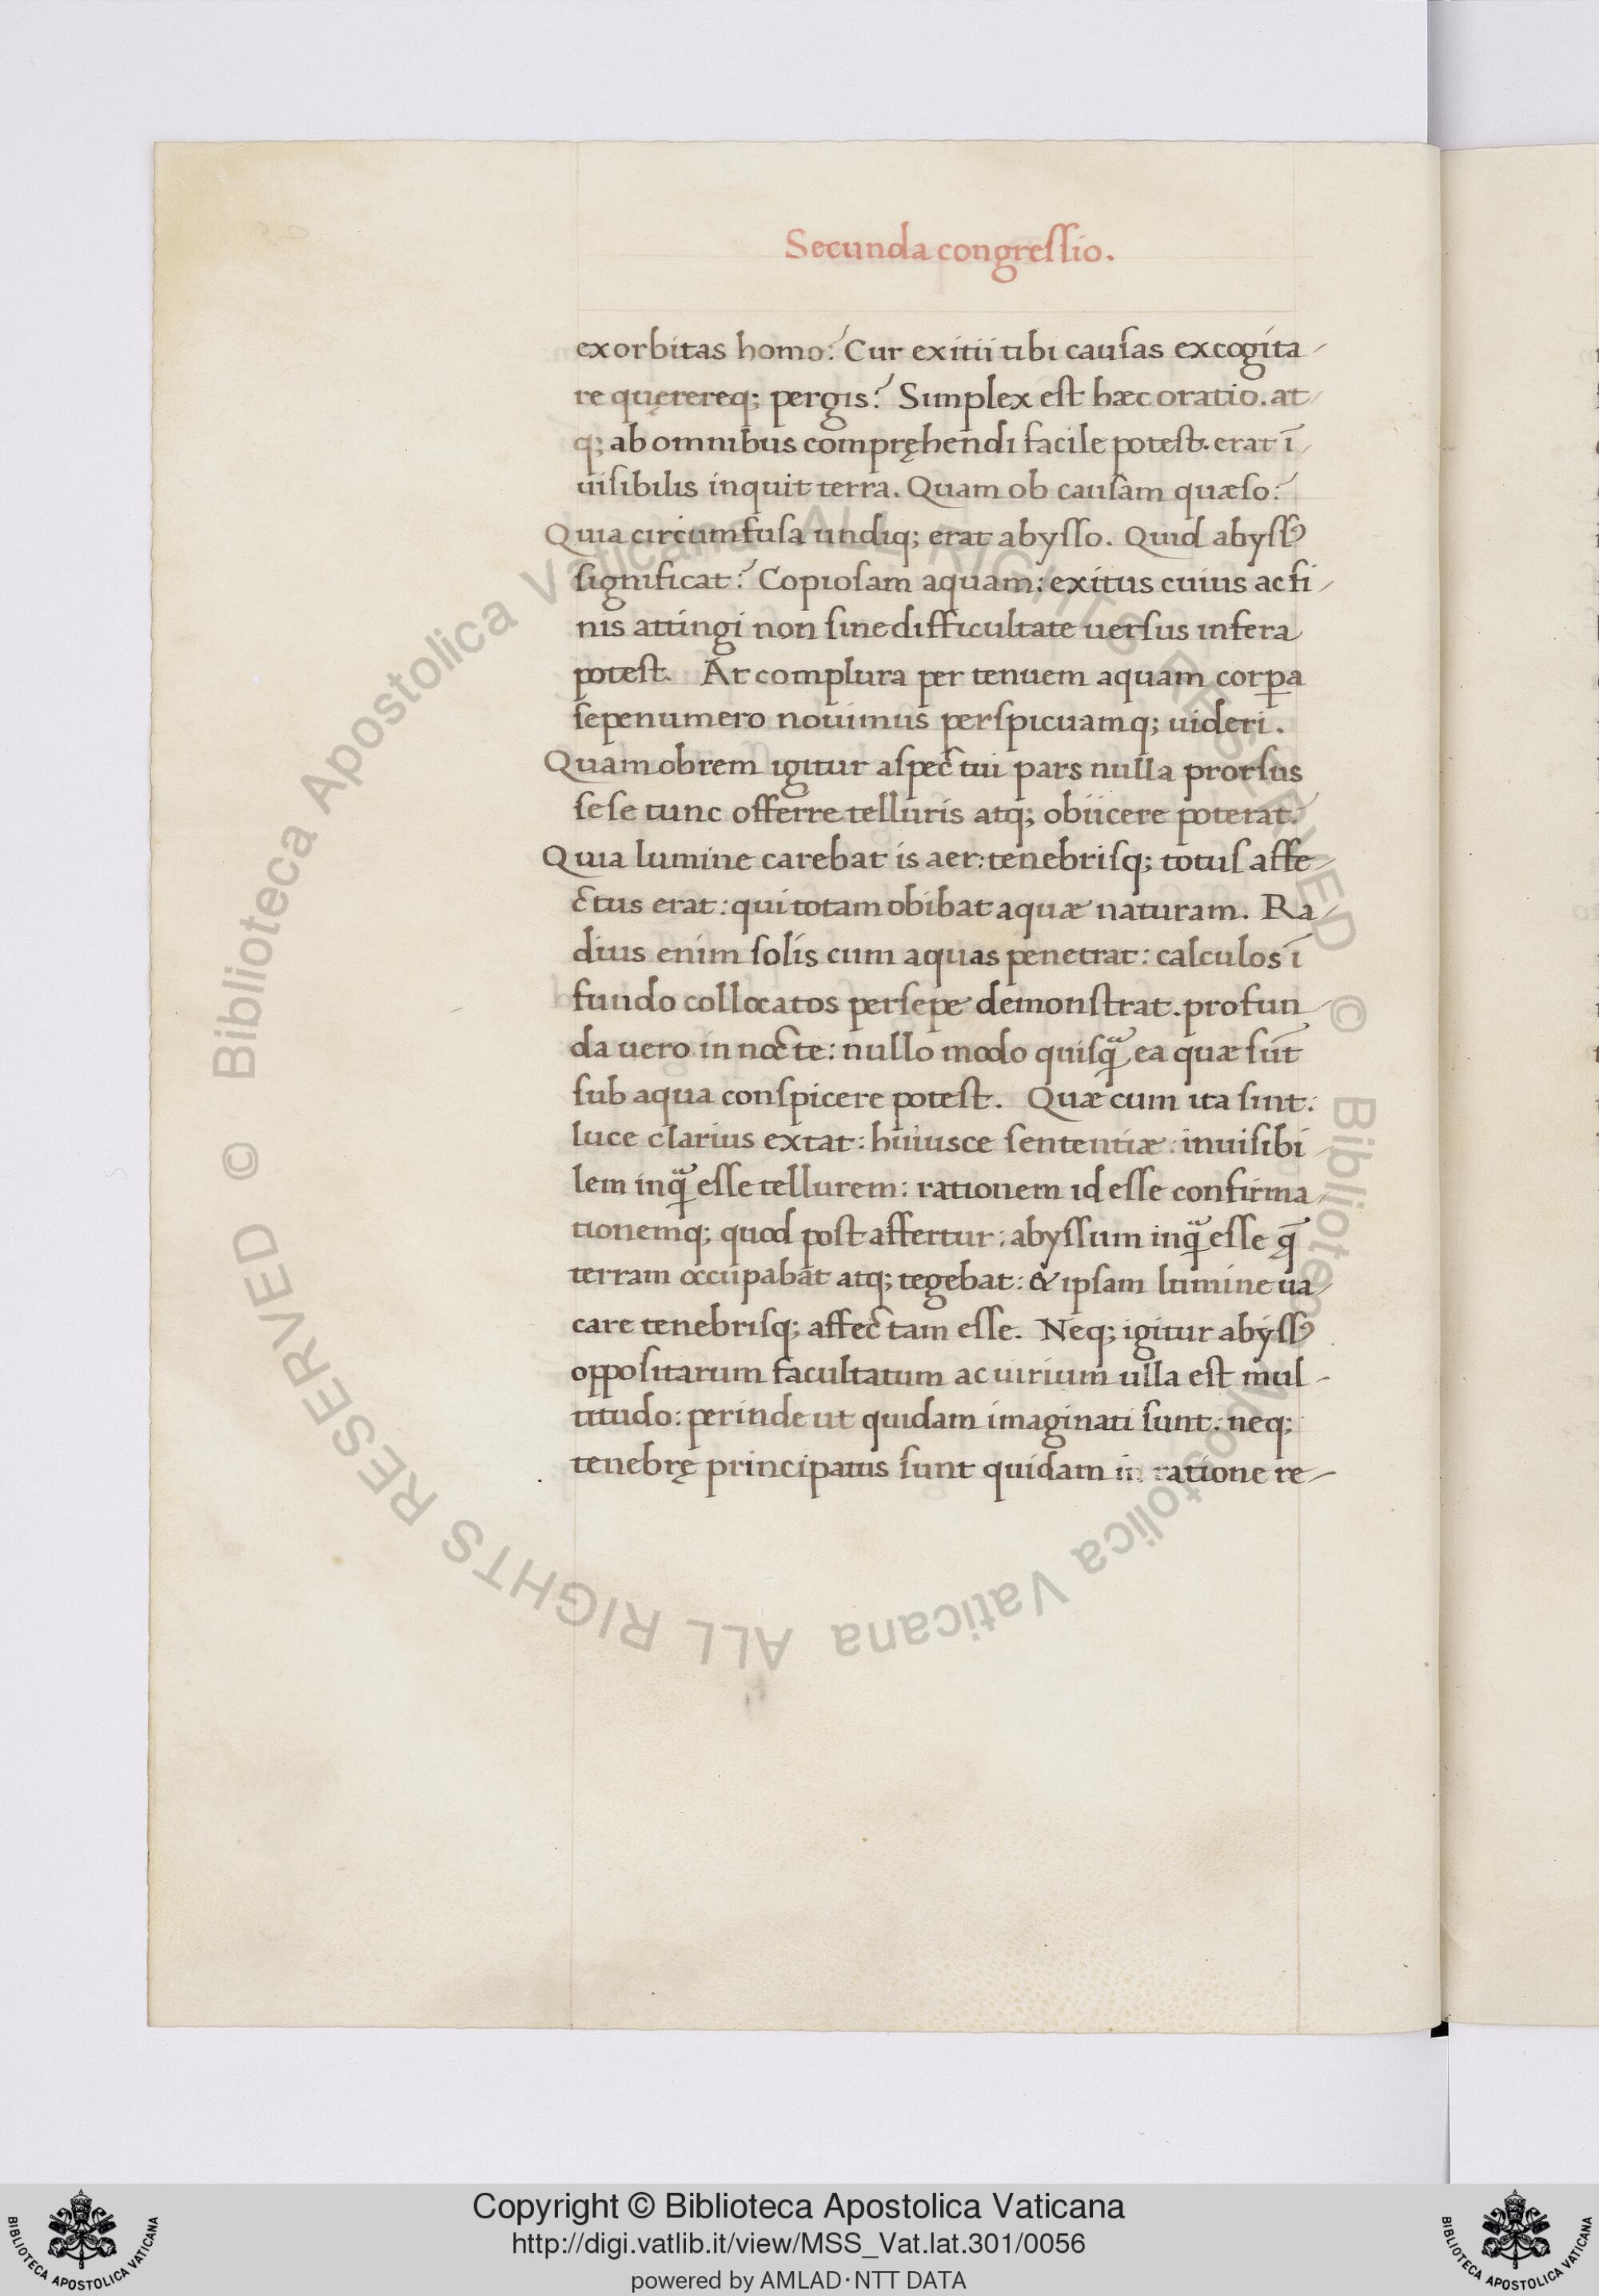 Secunda congreſſio.
exorbitas homo? Cur exitii tibi cauſas excogita-
re quęrereq; pergis? Simplex eſt hæc oratio. at-
q; ab omnibus compręhendi facile poteſt. erat ī
uiſibilis inquit terra. Quam ob cauſam quæſo?
Quia circumfuſa undiq; erat abyſſo. Quid abyſſꝰ
ſignificat? Copioſam aquam: exitus cuius ac fi-
nis attingi non ſine difficultate uerſus infera
poteſt. At complura per tenuem aquam corꝑa
ſepenumero nouimus perſpicuamq; uideri.
Quamobrem igitur aſpectui pars nulla prorſus
ſeſe tunc offerre telluris atq; obiicere poterat?
Quia lumine carebat is aer: tenebriſq; totuſ affe-
ctus erat: qui totam obibat aquæ naturam. Ra-
dius enim ſolis cum aquas penetrat: calculos ī
fundo collocatos perſepe demonſtrat. profun-
da uero in nocte: nullo modo quiſꝗ̃ ea quæ ſūt
ſub aqua conſpicere poteſt. Quæ cum ita ſint:
luce clarius extat: huiusce ſententiæ: inuiſibi
lem inꝗ̃ eſſe tellurem: rationem id eſſe confirma-
tionemq; quod poſt affertur: abyſſum inꝗ̃ eſſe q̄
terram occupabat atq; tegebat: & ipſam lumine ua-
care tenebriſq; affectam eſſe. Neq; igitur abyſſꝰ
oppoſitarum facultatum ac uirium ulla eſt mul-
titudo: perinde ut quidam imaginati ſunt: neq;
tenebrę principatus ſunt quidam in ratione re-
© Biblioteca Apostolica Vaticana ALL RIGHTS RESERVED
© Biblioteca Apostolica Vaticana ALL RIGHTS RESERVED
Copyright © Biblioteca Apostolica Vaticana
http://digi.vatlib.it/view/MSS_Vat.lat.301/0056
powered by AMLAD·NTT DATA
BIBLIOTECA APOSTOLICA VATICANA
BIBLIOTECA APOSTOLICA VATICANA